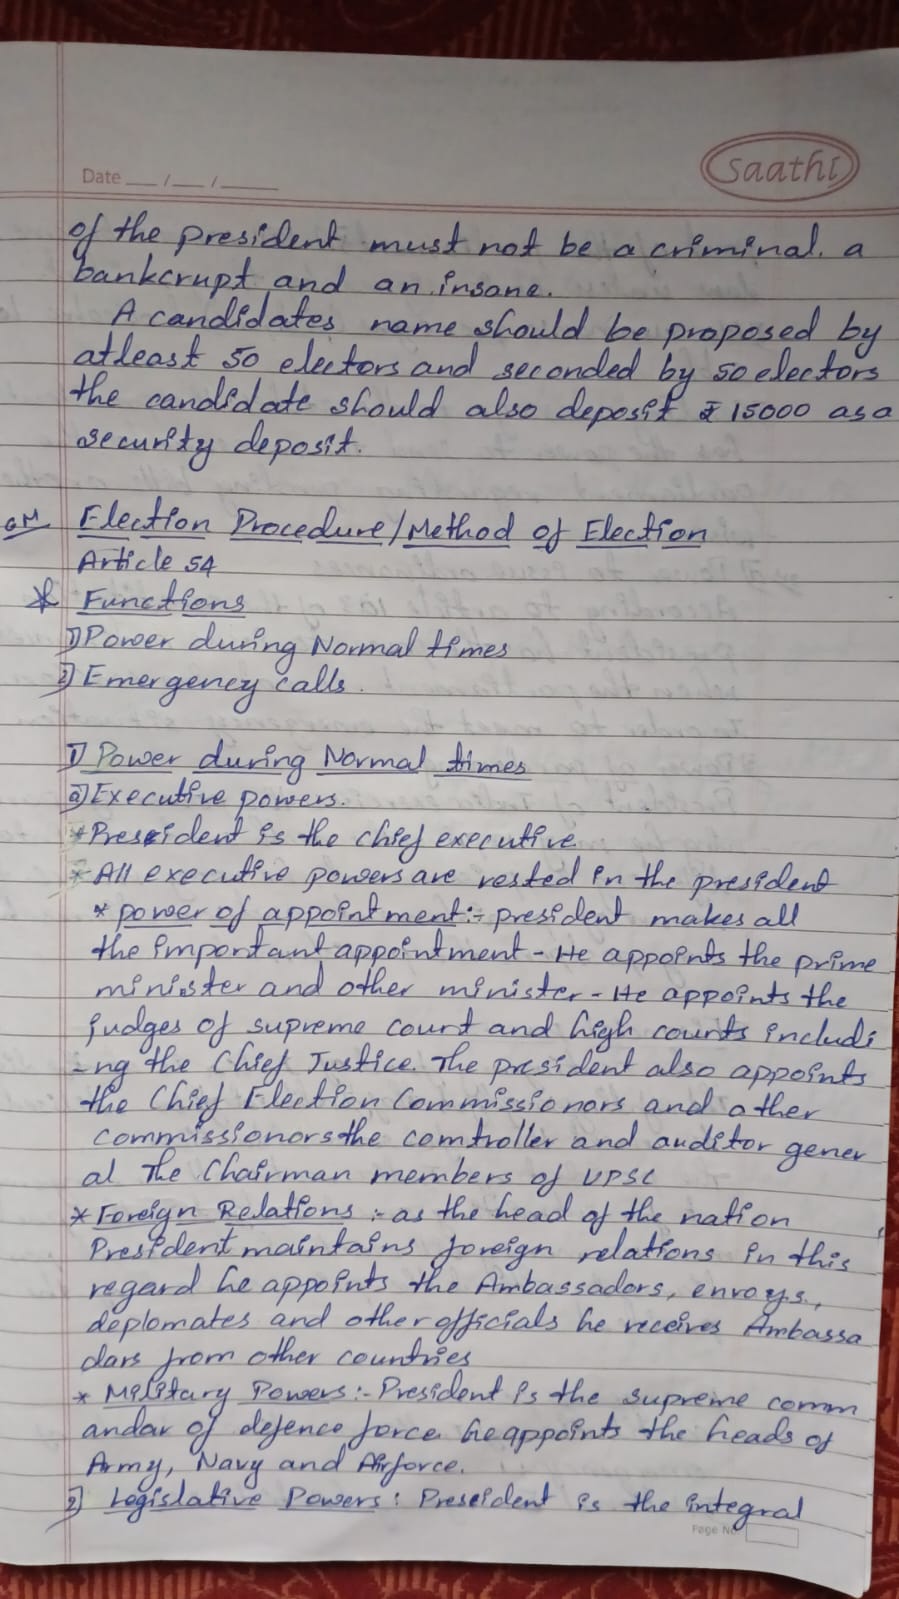 Date __/__/____
Saathi
of the president must not be a criminal. a
bankcrupt and an insane.
A candidates name should be proposed by
atleast 50 electors and seconded by 50 electors
the candidate should also deposit ₹ 15000 as a
security deposit.
6M Election Procedure/Method of Election
Article 54
* Functions
1) Power during Normal times
2) Emergency calls.
1) Power during Normal times
a) Executive powers.
* Preseident is the chief executive
* All executive powers are vested in the president
* power of appointment :- president makes all
the important appointment - He appoints the prime
minister and other minister - He appoints the
judges of supreme court and high courts includi
-ng the Chief Justice. The president also appoints
the Chief Election Commissionors and other
commissionors the comtroller and auditor gener
al The Chairman members of UPSC
* Foreign Relations :- as the head of the nation
President maintains foreign relations in this
regard he appoints the Ambassadors, envoys,
deplomates and other officials he receives Ambassa
dars from other countries
* Military Powers :- President is the supreme comm
andar of defence force he appoints the heads of
Army, Navy and Airforce.
2) Legislative Powers : Preseident is the integral
Page No.